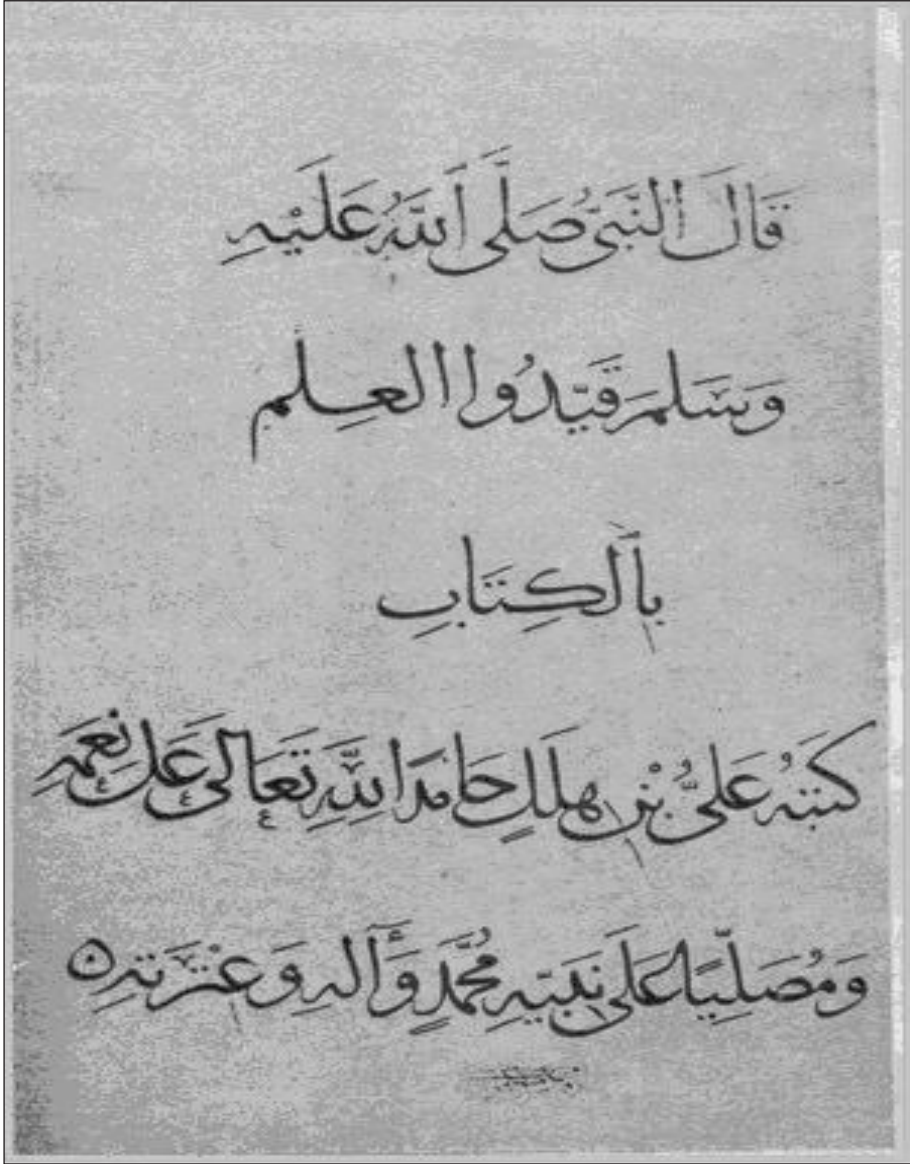 قَالَ النَّبِيُّ صَلَّى اللَّهُ عَلَيْهِ
وَسَلَّمَ قَيِّدُوا الْعِلْمَ
بِالْكِتَابِ
كَتَبَهُ عَلِيُّ بْنُ هِلَلٍ حَامِدًا لِلَّهِ تَعَالَى عَلَى نِعَمِهِ
وَمُصَلِّيًا عَلَى نَبِيِّهِ مُحَمَّدٍ وَآلِهِ وَعِتْرَتِهِ